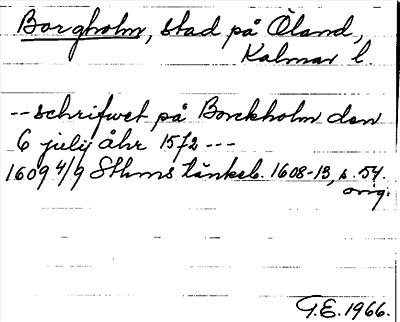 Borgholm, stad på Öland,
Kalmar l.
-- schrifwet på Borckholm den
6 julij åhr 1572 ---
1609 4/9 Sthms tänkeb. 1608-13, s. 54.
orig.
G.E. 1966.